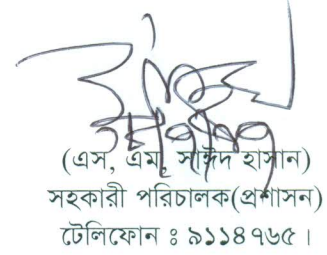 (এস, এম, সাঈদ হাসান)
সহকারী পরিচালক(প্রশাসন)
টেলিফোন ঃ ৯১১৪৭৬৫।